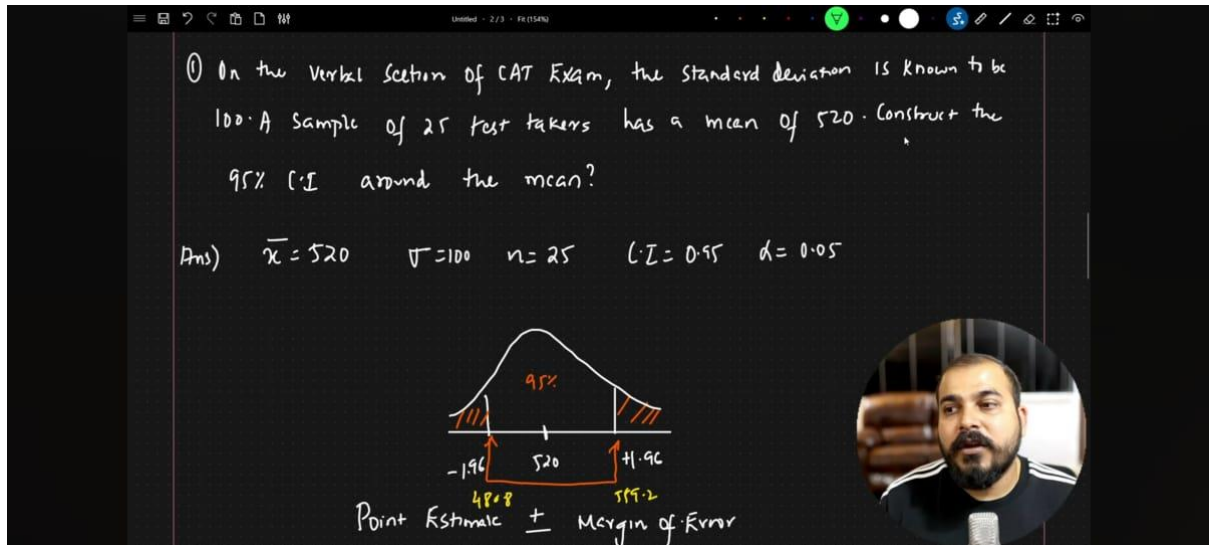 Untitled - 2/3 - Fit (154%)
① On the Verbal Scetion of CAT Exam, the standard deviation is known to be
100. A sample of 25 test takers has a mean of 520. Construct the
95% C.I around the mean?
Ans) x̄ = 520 σ = 100 n = 25 C.I = 0.95 α = 0.05
95%
-1.96 520 +1.96
480.8 559.2
Point Estimate ± Margin of Error